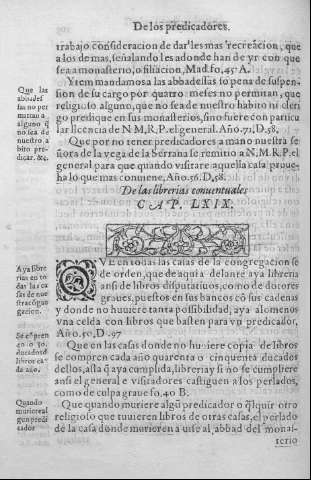 De los predicadores.
trabajo consideracion de darles mas recreacion, que
a los de mas, señalando les adonde han de yr con que
sea a monasterio, o filiacion, Mad. fo, 45. A.
Que las
abbades-
sas no per
mitan a
alguno q̃
no sea de
nuestro a
bito pre-
dicar, &c.
Y tem mandamos a las abbadessas so pena de suspen-
sion de su cargo por quatro meses no permitan, que
religioso alguno, que no sea de nuestro habito ni cleri
go predique en sus monasterios, sino fuere con particu
lar licencia de N M, R, P. el general. Año. 71, D, 58,
Que por no tener predicadores a mano nuestra se
ñora de la vega de la Serrana se remitio a N, M, R, P. el
general para que quando visitare aquella casa prouea
ha lo que mas conuiene, Año. 56. D, 58.
De las librerias conuentuales
CAP. LXIX.
Aya libre
rias en to
das las ca
sas de nue
stra cõgre
gacion.
QVE en todas las casas de la congregacion se
de orden, que de aqui a delante aya libreria
ansi de libros disputatiuos, como de dotores
graues, puestos en sus bancos cõ sus cadenas
y donde no huuiere tanta possibilidad, aya alomenos
vna celda con libros que basten para vn predicador,
Año. 50, D. 97
Que en las casas donde no huuiere copia de libros
se compren cada año quarenta o cinquenta ducados
dellos, asta q̃ aya cumplida, libreria y si no se cumpliere
ansi el general e visitadores castiguen a los perlados,
como de culpa graue fo, 40 B.
Quando
muriere al
gun predi
cador
Que quando muriere algũ predicador o q̃lquir otro
religioso que tuuieren libros de otras casas, el perlado
de la casa donde murieren auise al, abbad del monas-
terio